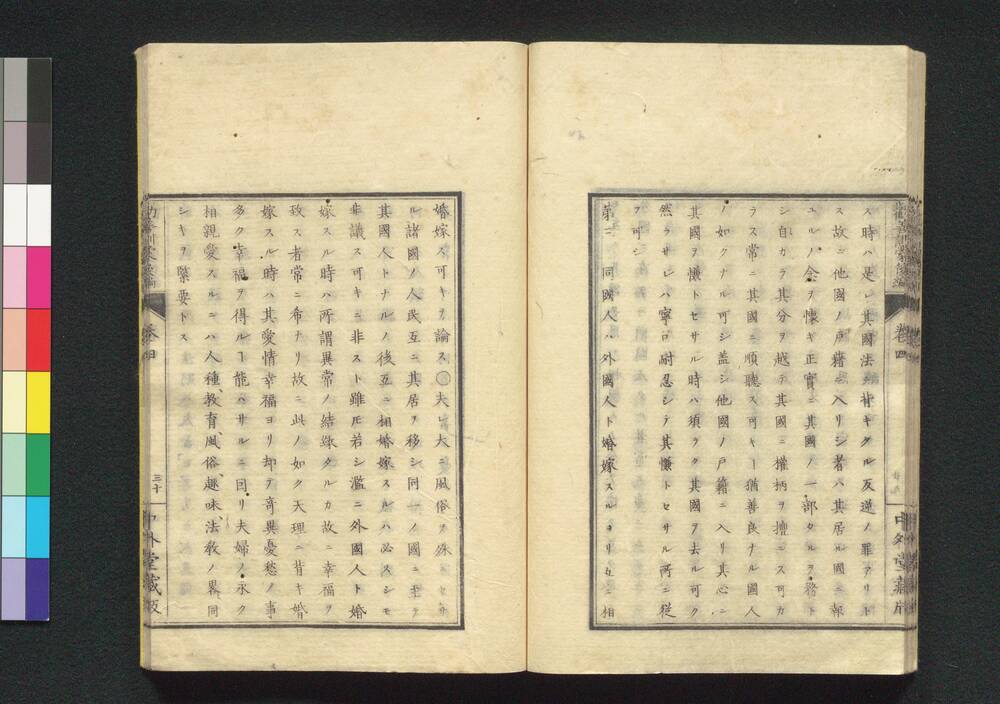 ス時ハ是レ其國法ニ背キタル反逆ノ罪アリト
ス故ニ他國ノ戸籍ニ入リシ者ハ其居ル國ニ報
ユルノ念ヲ懐キ正實ニ其國ノ一部タルヲ務ト
シ自カラ其分ヲ越テ其國ニ權柄ヲ擅ニス可カ
ラス常ニ其國ニ順聽ス可キヿ猶善良ナル國人
ノ如クナル可シ蓋シ他國ノ戸籍ニ入リ其心ニ
其國ヲ慊トセサル時ハ須ラク其國ヲ去ル可ク
然ラサレハ寧ロ耐忍シテ其慊トセサル所ニ從
フ可シ
第三 同國人ハ外國人ト婚嫁スルヨリ互ニ相
卷四
中外堂藏
婚嫁ス可キヲ論ス〇夫レ大ニ風俗ヲ殊ニセサ
ル諸國ノ人民互ニ其居ヲ移シ同一ノ國ニ至リ
其國人トナルノ後互ニ相婚嫁スルハ必スシモ
非議ス可キニ非スト雖𪜈若シ濫ニ外國人ト婚
嫁スル時ハ所謂異常ノ結緣タルカ故ニ幸福ヲ
致ス者常ニ希ナリ故ニ此ノ如ク天理ニ背キ婚
嫁スル時ハ其愛情幸福ヨリ却テ奇異憂愁ノ事
多ク幸福ヲ得ルヿ能ハサルニ因リ夫婦ノ永ク
相親愛スルニハ人種、教育、風俗、趣味、法教ノ畧同
シキヲ緊要トス
卷四
三十
中外堂藏板